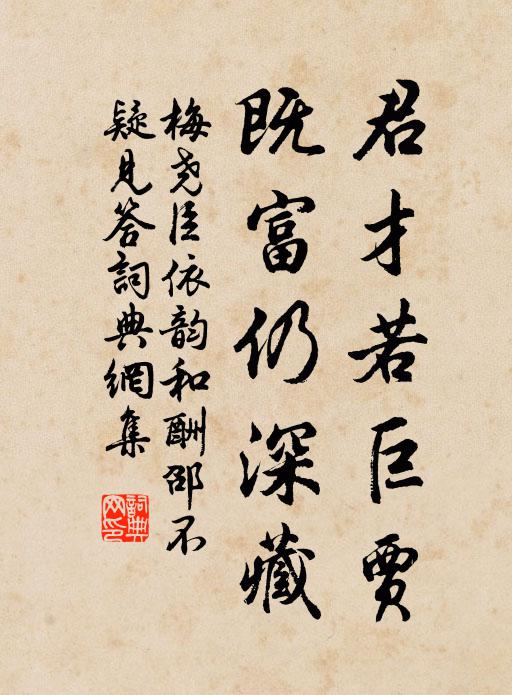 君才若巨賈
既富仍深藏
梅尧臣依韵和酬邵不
疑見答詞典網集
詞典
网印